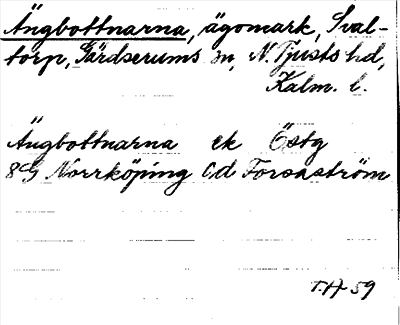 Ängbottnarna, ägomark, Sval-
torp, Gärdserums sn, N. Tjusts hd,
Kalm. l.
Ängbottnarna ek Östg
8G Norrköping Cd Forsaström
T.H 59